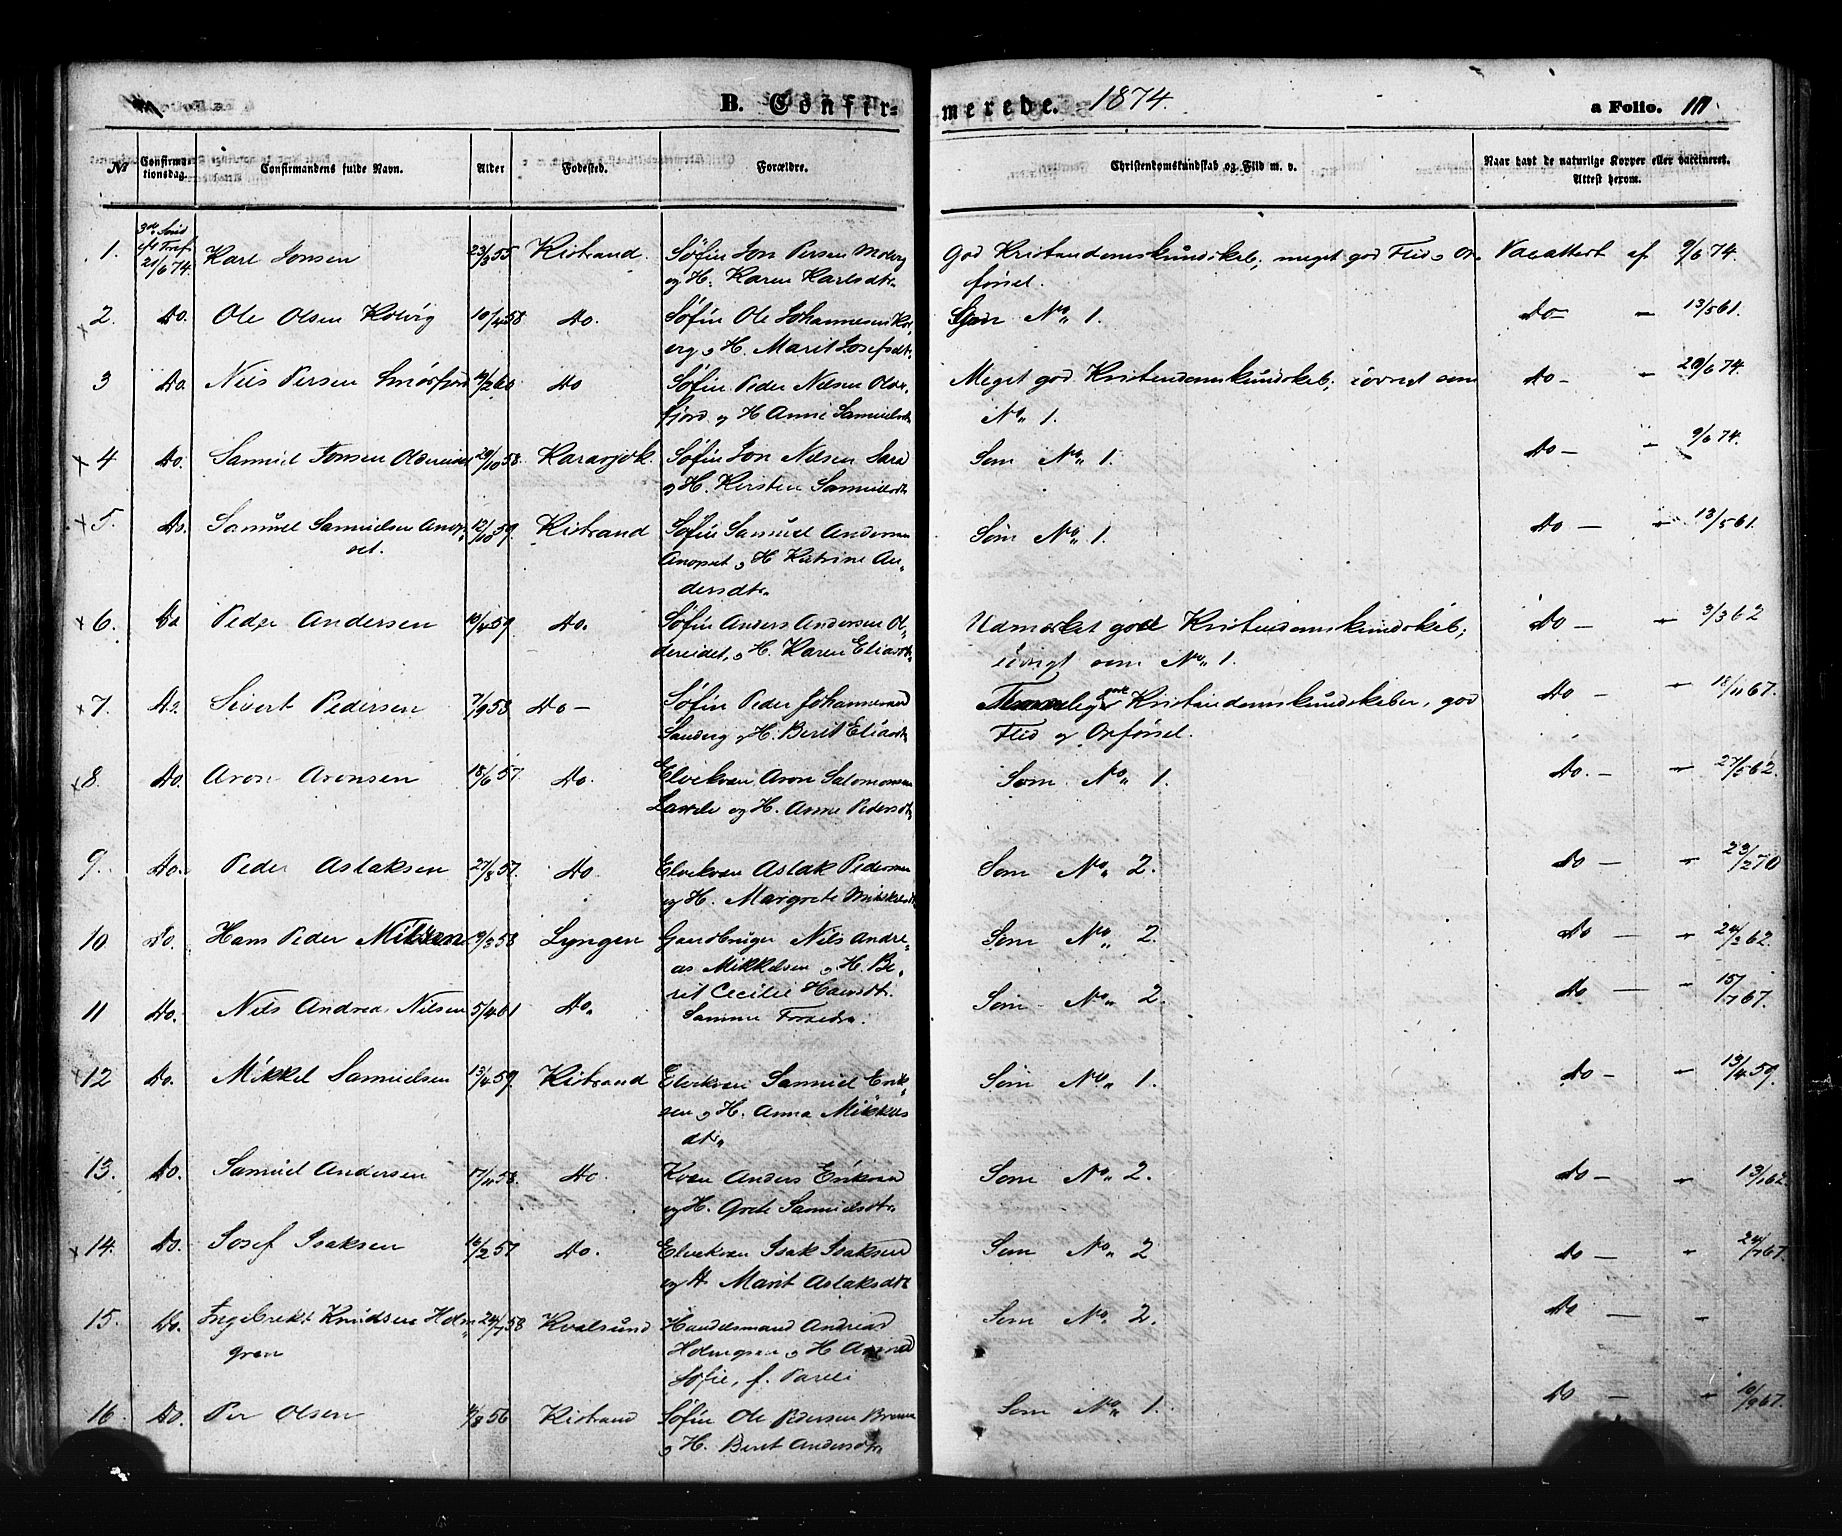 B. Confir- merede. 1874. a Folio. 111.
No Confirmationsdag. Confirmandens fulde Navn. Alder Fødested. Forældre. Christendomskundskab og Flid m. v. Naar havt de naturlige Kopper eller vaccineret. Attest herom.
1. 3die Sønd eft Tref 21/6 74. Karl Jonsen 23/3 55 Kistrand. Søfin Jon Persen
og H. Karen Karlsdtr. God Kristendomskundskab; meget god Flid og Op-
førsel. Vacattest af 9/6 74.
2. Do. Ole Olsen Kolvig 10/4 58 Do. Søfin Ole Johannesen Kol-
og H. Marit Josefsdtr. Som No. 1. Do — " 13/5 61.
3 Do. Nils Persen Smørfjord /2 60 Do Søfin Peder Nilsen Older-
fjord og H Anne Samuelsdtr Meget god Kristendomskundskab; iøvrigt som
No. 1. Do — " 20/6 74.
4 Do. Samuel Jonsen Oldereidet 20/10 58. Karasjok. Søfin Jon Nilsen Sara
og H. Kirsten Samuelsdtr Som No. 1. Do — " 9/6 74.
5. Do. Samuel Samuelsen Anop-
set. 12/10 59. Kistrand Søfin Samuel Andersen
Anopset og H Katrine An-
dersdtr. Som No. 1. Do — " 13/5 61.
6. Do Peder Andersen 10/4 59. Do. Søfin Anders Andersen Ol-
dereidet, og H. Karen Eliasdtr Udmærket god Kristendomskundskab;
iøvrigt som No. 1. Do — " 3/3 62
7. Do. Sivert Pedersen 7/9 58 Do — Søfin Peder Johannesen
og H. Berit Eliasdtr Temmelig god Kristendomskundskaber, god
Flid og Opførsel. Do — " 18/11 67.
8. Do. Aron Aronsen 18/6 57. Do. Elvekvæn Aron Salomonsen
og H. Anne Pedersdtr Som No. 1. Do. — " 27/5 62.
9. Do. Peder Aslaksen 27/8 57. Do. Elvekvæn Aslak Pedersen
og H. Margrete Mikkelsdtr Som No. 2. Do — " 23/2 70
10 Do. Hans Peder /3 58 Lyngen Gaardbruger Nils Andre-
as Mikkelsen og H. Be-
rit Cecilie Hansdtr. Som No. 2. Do — " 24/2 62.
11 Do. Nils Andreas Nilsen 5/4 61 Do. Samme Forældre. Som No. 2. Do — " 15/7 67.
12 Do. Mikkel Samuelsen 13/4 59. Kistrand Elvekvæn Samuel Erik-
sen og H. Anna Mikkels
dtr. Som No. 1. Do — " 13/4 59.
13. Do. Samuel Andersen 17/11 58. Do. Kvæn Anders Eriksen
og H. Grete Samuelsdtr. Som No. 2. Do — " 13/1 62
14. Do. Josef Isaksen 16/2 57 Do. Elvekvæn Isak Isaksen
og H Marit Aslaksdtr Som No. 2 Do — " 24/7 67.
15. Do. Ingebrekt Knudsen Holm-
gren 24/7 58 Kvalsund Handelsmand Andreas
Holmgren og H
Sofie, f. Som No. 2. Do — "
16. Do. Per Olsen /8 56 Kistrand Søfin Ole Pedersen
og H. Berit Andersdtr. Som No. 1. Do — " 10/9 67.